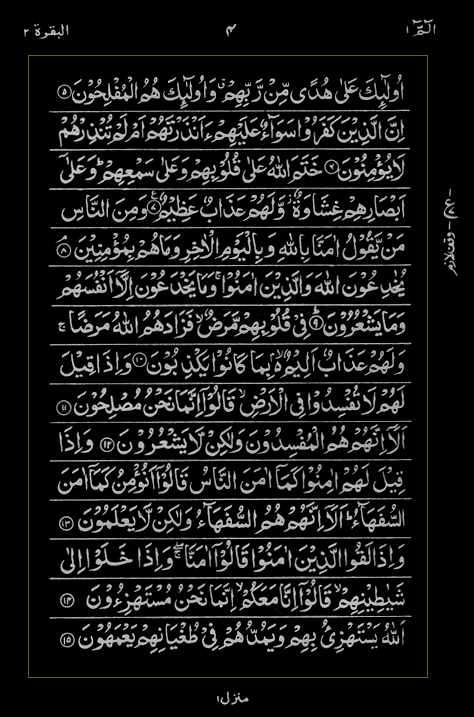 الٓمّٓ ۱ ۴ البقرة ۲
اُولٰٓئِكَ عَلٰى هُدًى مِّنْ رَّبِّهِمْ ۙ وَاُولٰٓئِكَ هُمُ الْمُفْلِحُوْنَ ۵
اِنَّ الَّذِيْنَ كَفَرُوْا سَوَآءٌ عَلَيْهِمْ ءَاَنْذَرْتَهُمْ اَمْ لَمْ تُنْذِرْهُمْ
لَا يُؤْمِنُوْنَ ۶ خَتَمَ اللّٰهُ عَلٰى قُلُوْبِهِمْ وَعَلٰى سَمْعِهِمْ ؕ وَعَلٰٓى
اَبْصَارِهِمْ غِشَاوَةٌ ۫ وَّلَهُمْ عَذَابٌ عَظِيْمٌ ۷ وَمِنَ النَّاسِ
مَنْ يَّقُوْلُ اٰمَنَّا بِاللّٰهِ وَبِالْيَوْمِ الْاٰخِرِ وَمَا هُمْ بِمُؤْمِنِيْنَ ۘ ۸
يُخٰدِعُوْنَ اللّٰهَ وَالَّذِيْنَ اٰمَنُوْا ۚ وَمَا يَخْدَعُوْنَ اِلَّآ اَنْفُسَهُمْ
وَمَا يَشْعُرُوْنَ ؕ ۹ فِيْ قُلُوْبِهِمْ مَّرَضٌ ۙ فَزَادَهُمُ اللّٰهُ مَرَضًا ۚ
وَلَهُمْ عَذَابٌ اَلِيْمٌ ۢ ۙ بِمَا كَانُوْا يَكْذِبُوْنَ ۱۰ وَاِذَا قِيْلَ
لَهُمْ لَا تُفْسِدُوْا فِى الْاَرْضِ ۙ قَالُوْٓا اِنَّمَا نَحْنُ مُصْلِحُوْنَ ۱۱
اَلَآ اِنَّهُمْ هُمُ الْمُفْسِدُوْنَ وَلٰكِنْ لَّا يَشْعُرُوْنَ ۱۲ وَاِذَا
قِيْلَ لَهُمْ اٰمِنُوْا كَمَآ اٰمَنَ النَّاسُ قَالُوْٓا اَنُؤْمِنُ كَمَآ اٰمَنَ
السُّفَهَآءُ ؕ اَلَآ اِنَّهُمْ هُمُ السُّفَهَآءُ وَلٰكِنْ لَّا يَعْلَمُوْنَ ۱۳
وَاِذَا لَقُوا الَّذِيْنَ اٰمَنُوْا قَالُوْٓا اٰمَنَّا ۚ وَاِذَا خَلَوْا اِلٰى
شَيٰطِيْنِهِمْ ۙ قَالُوْٓا اِنَّا مَعَكُمْ ۙ اِنَّمَا نَحْنُ مُسْتَهْزِءُوْنَ ۱۴
اَللّٰهُ يَسْتَهْزِئُ بِهِمْ وَيَمُدُّهُمْ فِيْ طُغْيَانِهِمْ يَعْمَهُوْنَ ۱۵
وقف لازم
منزل ۱